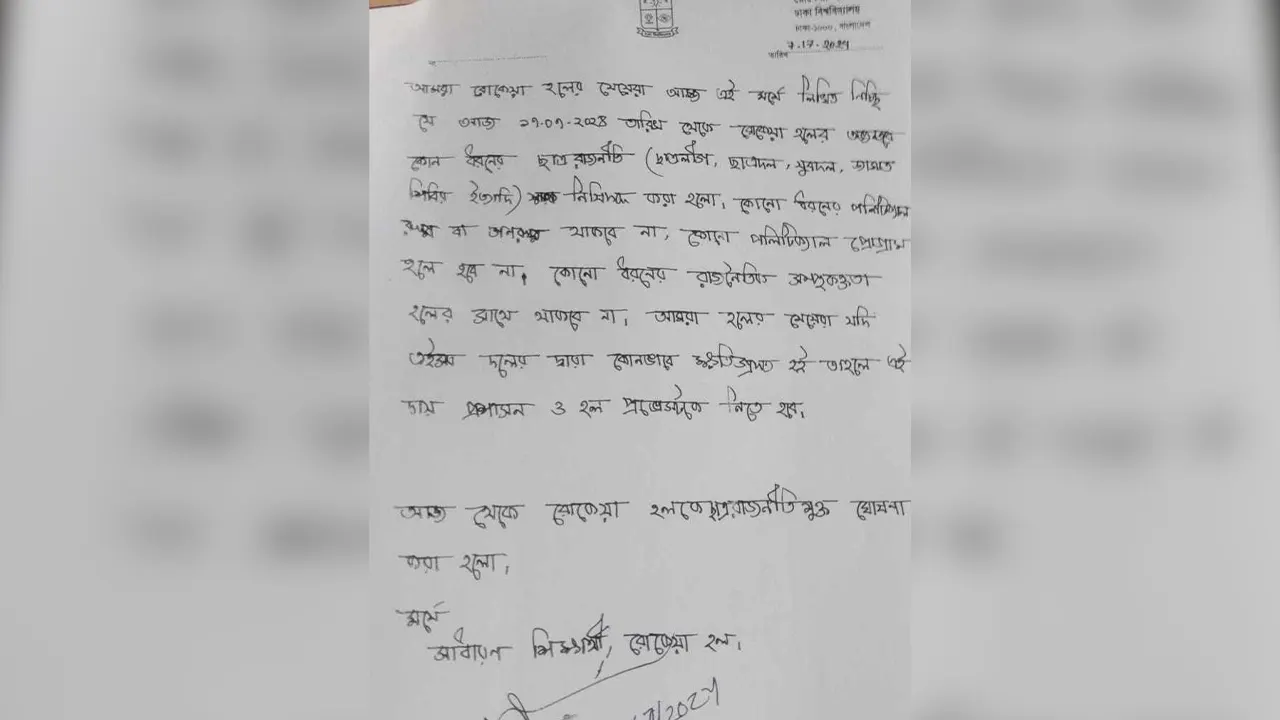 ঢাকা বিশ্ববিদ্যালয়
ঢাকা-১০০০, বাংলাদেশ
তারিখ 7.17.2024
আমরা রোকেয়া হলের মেয়েরা আজ এই মর্মে লিখিত নিচ্ছি
যে আজ ১৭.০৭.২০২৪ তারিখ থেকে রোকেয়া হলের অভ্যন্তরে
কোন ধরনের ছাত্র রাজনীতি (ছাত্রলীগ, ছাত্রদল, যুবদল, জামাত
শিবির ইত্যাদি) নিষিদ্ধ করা হলো। কোনো ধরনের পলিটিক্যাল
রুম বা গণরুম থাকবে না, কোনো পলিটিক্যাল প্রোগ্রাম
হলে হবে না। কোনো ধরনের রাজনৈতিক সম্পৃক্ততা
হলের সাথে থাকবে না। আমরা হলের মেয়েরা যদি
এইসব দলের দ্বারা কোনভাবে ক্ষতিগ্রস্ত হই তাহলে এই
দায় প্রশাসন ও হল প্রভোস্টকে নিতে হবে।
আজ থেকে রোকেয়া হলকে ছাত্ররাজনীতি মুক্ত ঘোষনা
করা হলো।
মর্মে
সাধারণ শিক্ষার্থী, রোকেয়া হল।